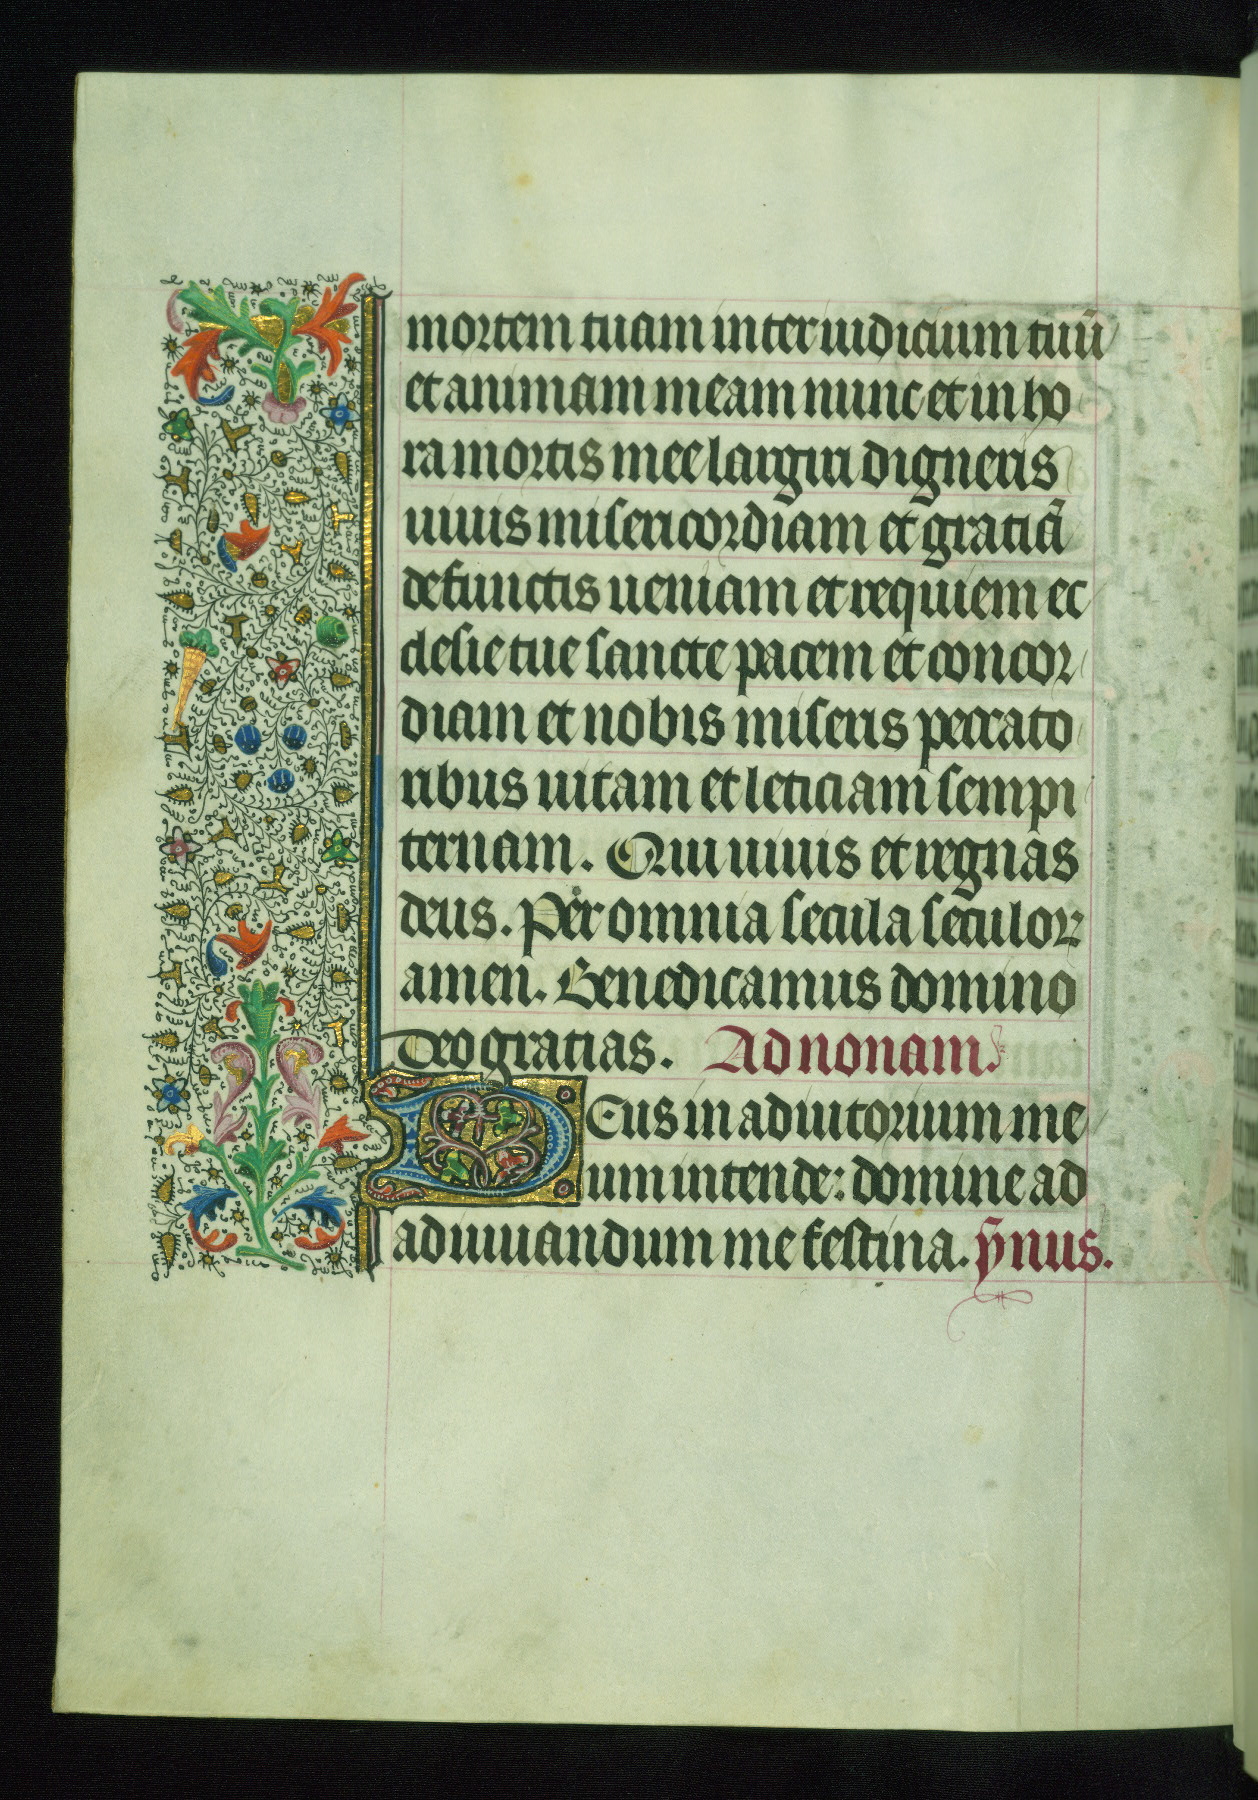 mortem tuam inter iudicium tuū
et animam meam nunc et in ho
ra mortis mee largiri digneris
uiuis misericordiam et gratiā
defunctis ueniam et requiem ec
clesie tue sancte pacem et concor
diam et nobis miseris peccato
ribus uitam et leticiam sempi
ternam. Qui uiuis et regnas
deus. Per omnia secula seculoꝝ
amen. Benedicamus domino
Deo gratias. Ad nonam.
Deus in adiutorium me
um intende: domine ad
adiuuandum me festina. ȳnus.